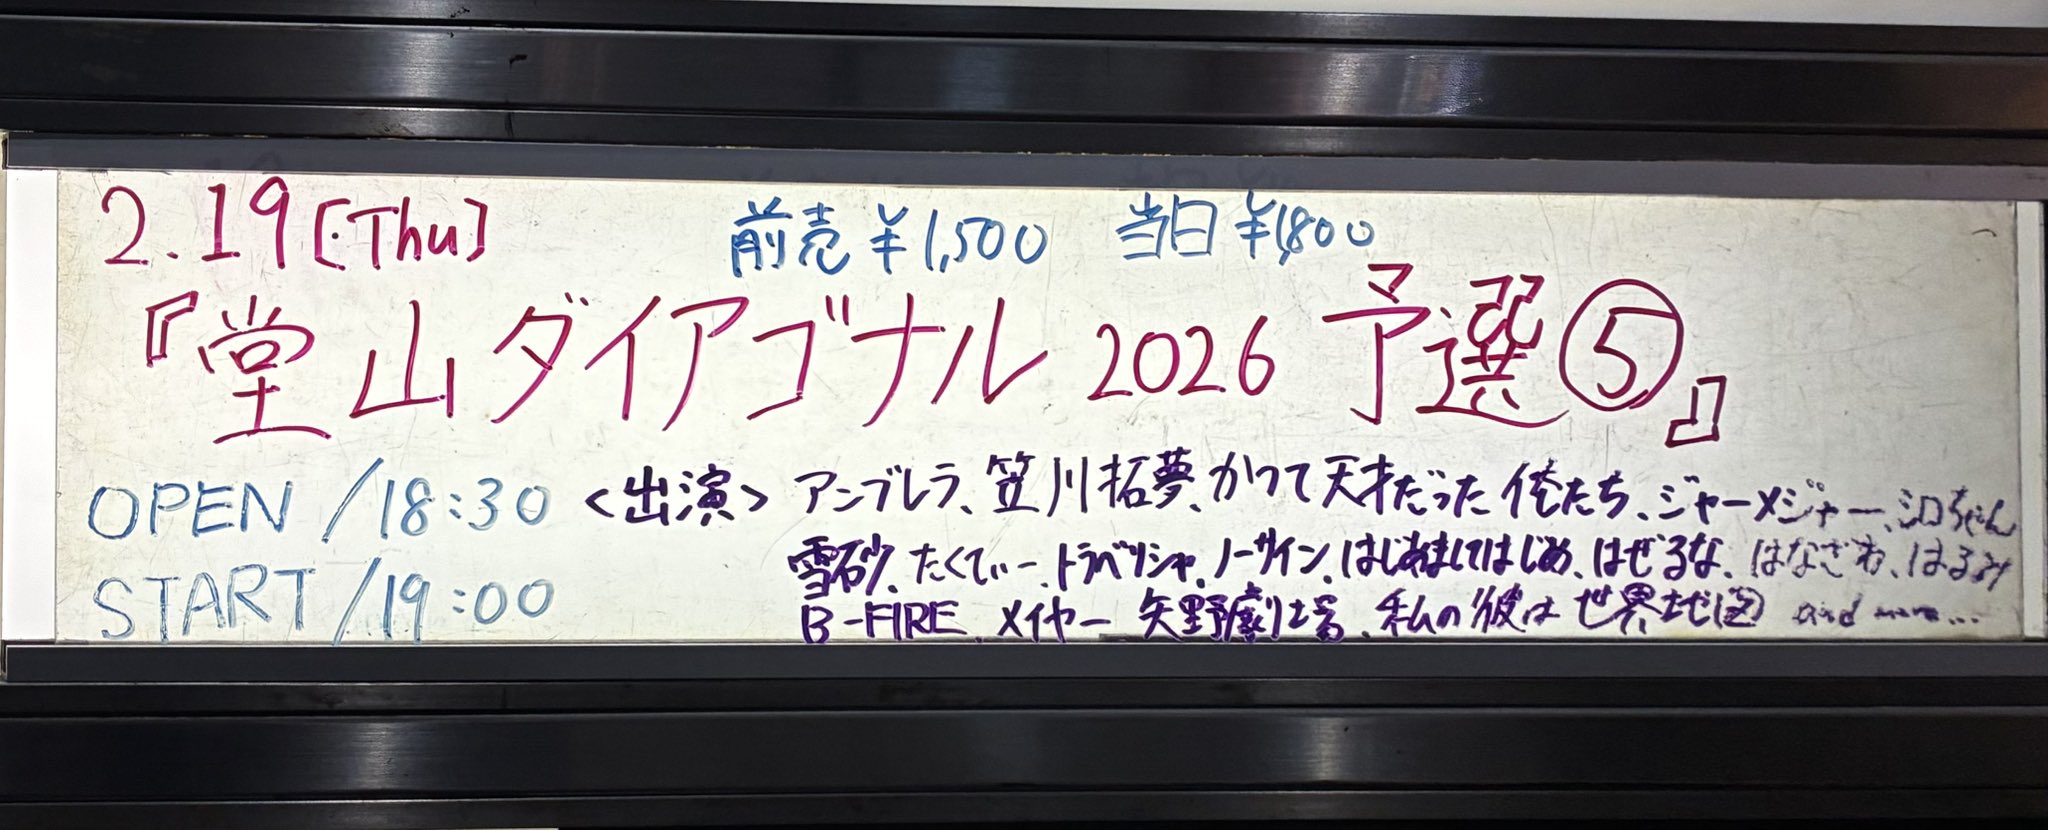 2.19[Thu]
前売¥1,500 当日¥1,800
『堂山ダイアゴナル 2026 予選⑤』
OPEN /18:30
START /19:00
<出演> アンブレラ、笠川拓夢、かつて天才だった俺たち、ジャーメジャー、シロちゃん
雪砂、たくてぃー、トラベリシャ、ノーサイン、はじめましてはじめ、はぜるな、はなざわ、はるみ
B-FIRE、メイヤー 矢野劇場、私の彼は世界地図 and more...